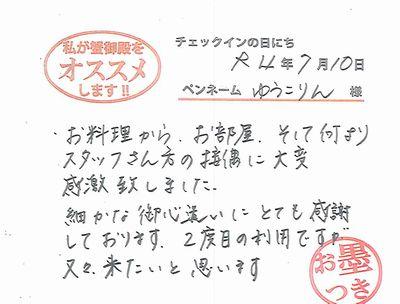 私が蟹御殿を
オススメ
します!!
チェックインの日にち
R4年7月10日
ペンネーム ゆうこりん 様
・お料理から、お部屋、そして何より
スタッフさん方の接偶に大変
感激致しました。
細かな御心遣いにとても感謝
しております。2度目の利用ですが
又々来たいと思います
お墨
つき